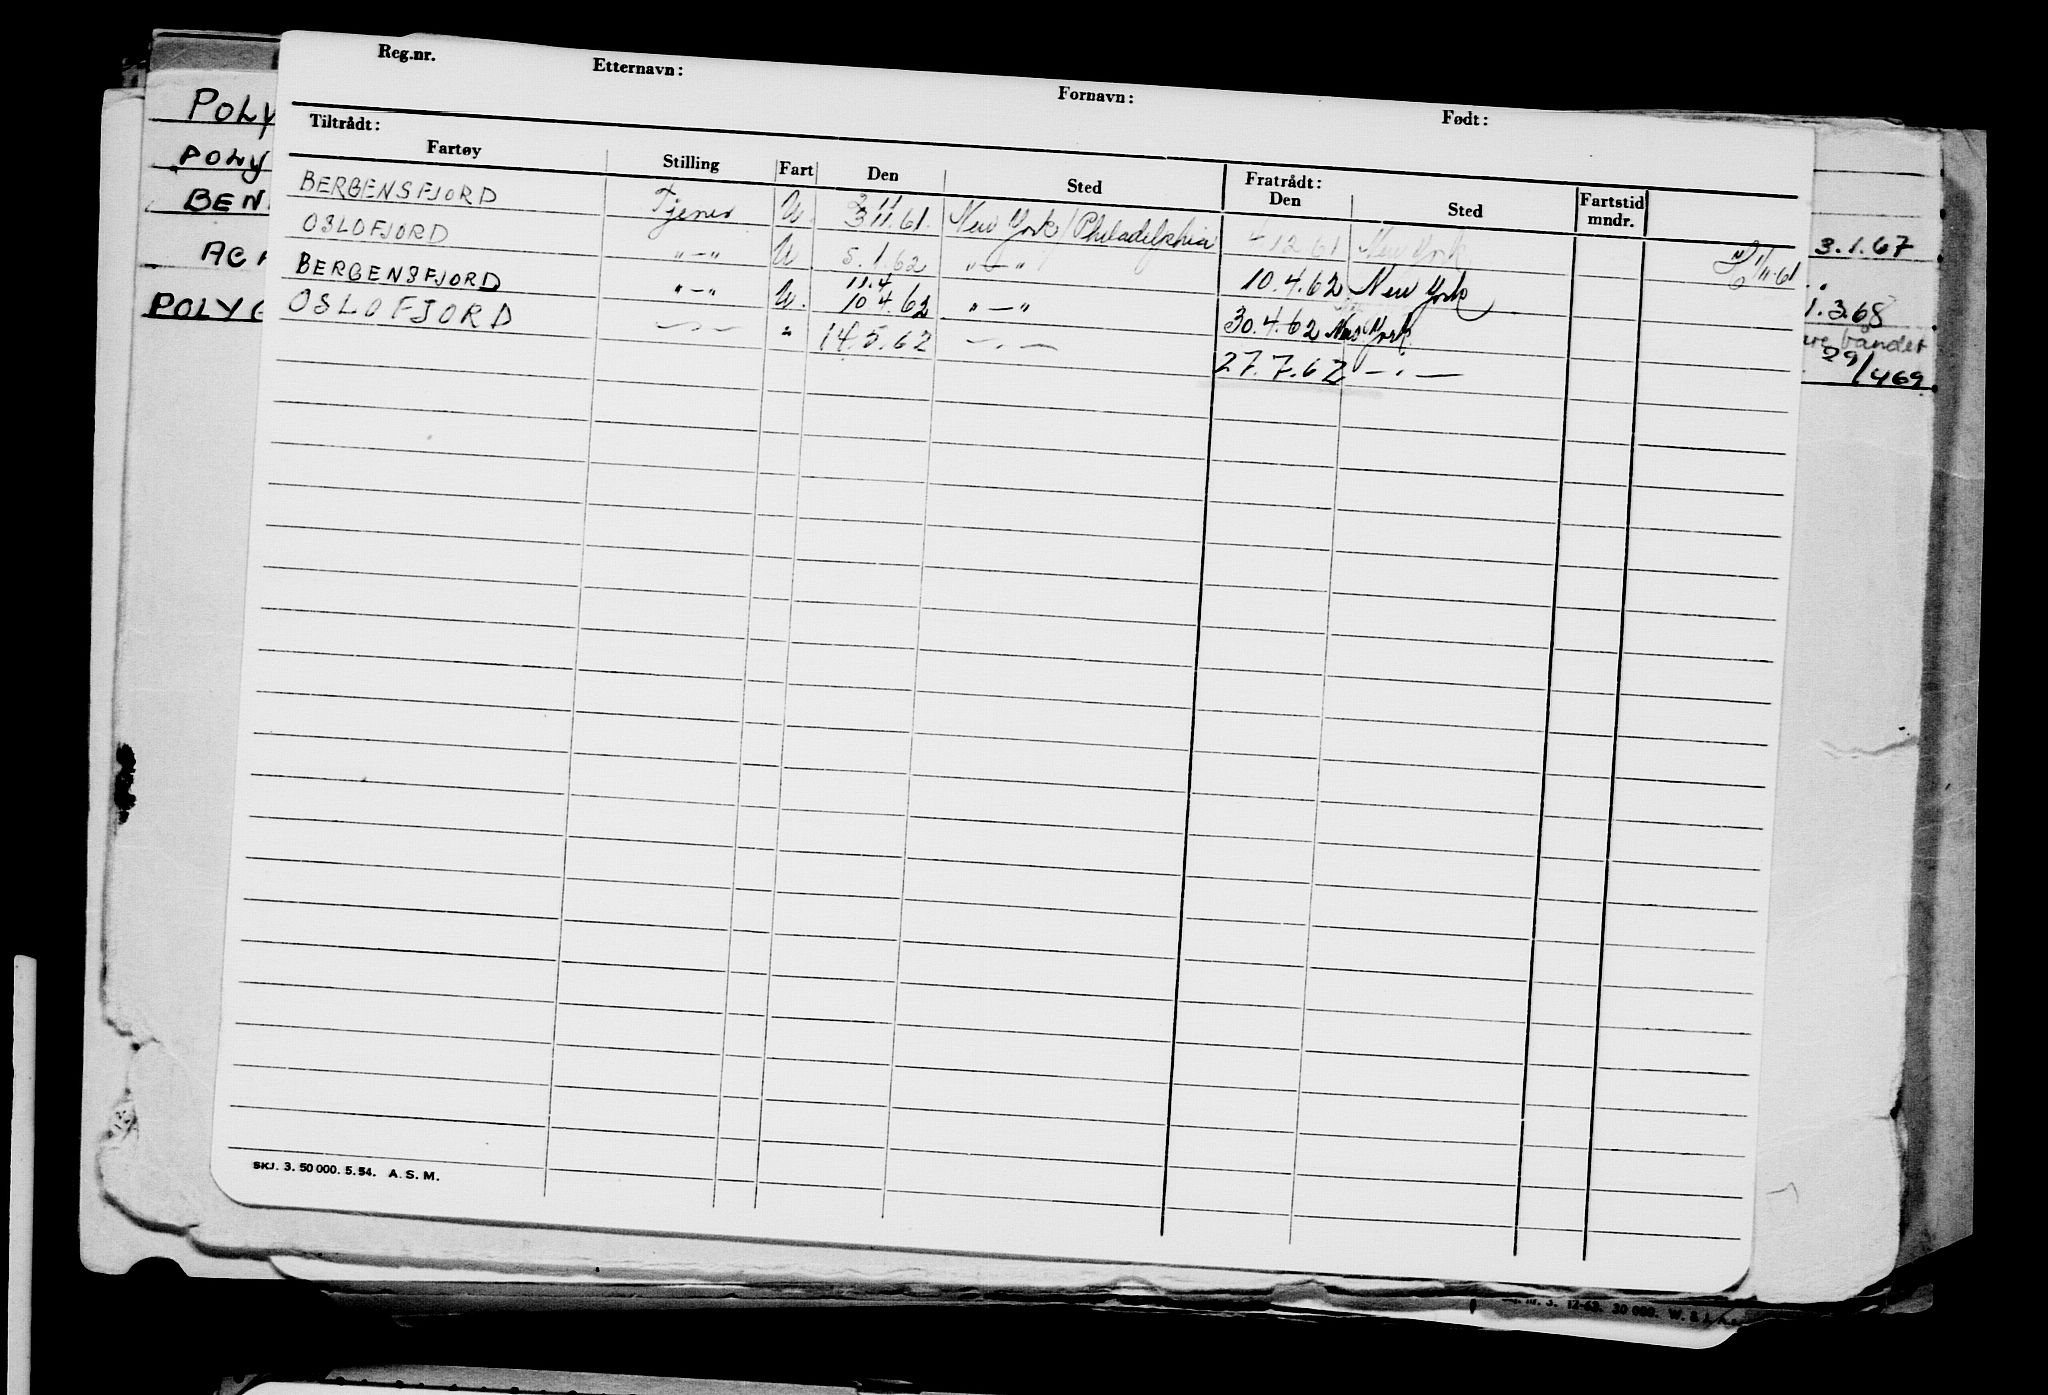 Reg.nr. Etternavn: Fornavn: Født:
Tiltrådt: Fratrådt:
Fartøy Stilling Fart Den Sted Den Sted Fartstid mndr.
BERGENSFJORD Tjener U. 3.11.61. New York/Philadelphia 4.12.61 New York 1/11-61
OSLOFJORD "-" U 5.1.62 "-" 10.4.62 New York
11.4
BERGENSFJORD "-" U. 10.4.62 "-" 30.4.62 New York
OSLOFJORD -"- " 14.5.62 -"- 27.7.62 -"-
SKJ. 3. 50 000. 5.54. A. S. M.
POLY
POLY
BEN
POLYG
3.1.67
1.3.68
båndet
29/469
3. 12-62. 30 000. W.